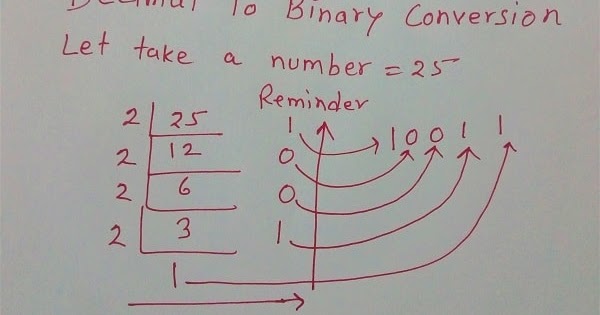 Decimal To Binary Conversion
Let take a number = 25
Reminder
2 25 1 1 0 0 1 1
2 12 0
2 6 0
2 3 1
1